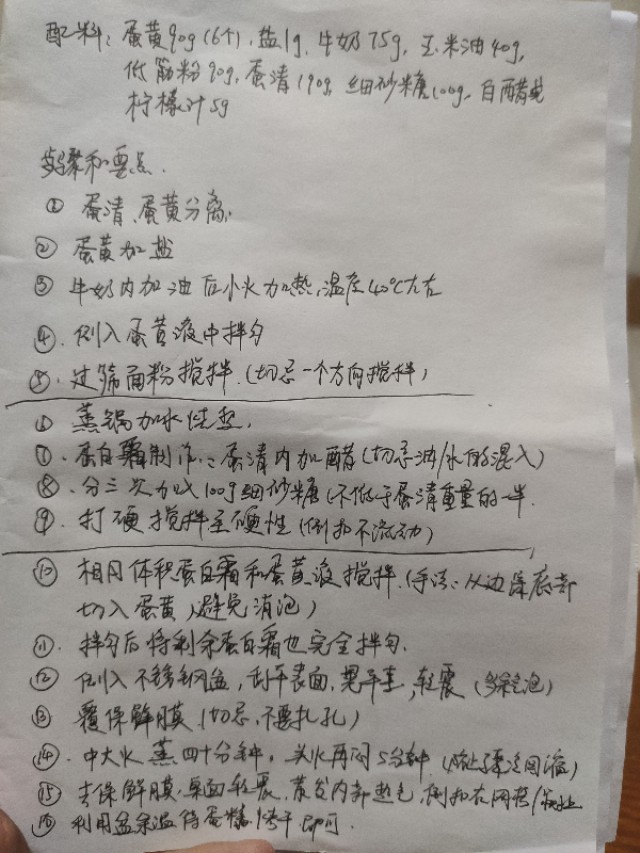 配料：蛋黄90g(6个)，盐1g，牛奶75g，玉米油40g，
低筋粉90g，蛋清190g，细砂糖100g，白醋或
柠檬汁5g
步骤和要点．
① 蛋清、蛋黄分离．
② 蛋黄加盐
③ 牛奶内加油后小火加热，温度40℃左右
④．倒入蛋黄液中拌匀
⑤．过筛面粉搅拌．(切忌一个方向搅拌)
⑥ 蒸锅加水烧
⑦．蛋白霜制作：蛋清内加醋(切忌油/水的混入)
⑧．分三次加入100g细砂糖(不低于蛋清重量的一半．
⑨．打硬搅拌至硬性(倒扣不流动)
⑩ 相同体积蛋白霜和蛋黄液搅拌．(手法：从边缘底部
切入蛋黄，避免消泡)
⑪．拌匀后将剩余蛋白霜也完全拌匀．
⑫ 倒入不锈钢盆，刮平表面，轻震(
⑬ 覆保鲜膜(切忌，不要扎孔)
⑭．中大火蒸四十分钟，关火再闷5分钟．(防止
⑮ 去保鲜膜．桌面轻震．蒸发内部热气，倒扣在网架/
⑯ 利用盆余温将蛋糕烘干即可．